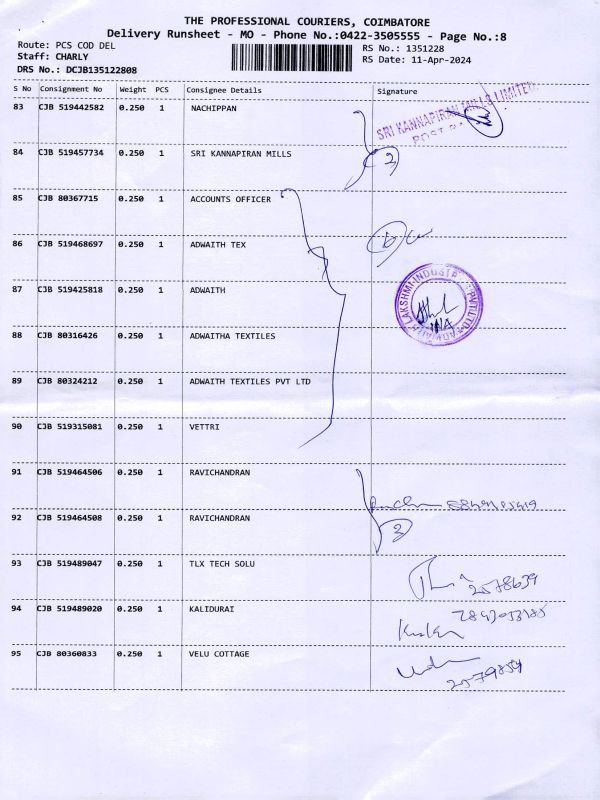 THE PROFESSIONAL COURIERS, COIMBATORE
Delivery Runsheet - MO - Phone No.:0422-3505555 - Page No.:8
Route: PCS COD DEL
RS No.: 1351228
Staff: CHARLY
RS Date: 11-Apr-2024
DRS No.: DCJB135122808
S No Consignment No Weight PCS Consignee Details Signature
83 CJB 519442582 0.250 1 NACHIPPAN
SRI KANNAPIRAN MILLS LIMITED
84 CJB 519457734 0.250 1 SRI KANNAPIRAN MILLS
2
85 CJB 80367715 1 ACCOUNTS OFFICER
86 CJB 519468697 0.250 1 ADWAITH TEX
6
87 CJB 519425818 0.250 1 ADWAITH
ADWAITH LAKSHMI INDUSTR PVT LTD
88 CJB 80316426 0.250 1 ADWAITHA TEXTILES
89 CJB 80324212 0.250 1 ADWAITH TEXTILES PVT LTD
90 CJB 519315081 0.250 1 VETTRI
91 CJB 519464506 0.250 1 RAVICHANDRAN
92 CJB 519464508 0.250 1 RAVICHANDRAN
2
93 CJB 519489047 0.250 1 TLX TECH SOLU
2578639
94 CJB 519489020 0.250 1 KALIDURAI
95 CJB 80360833 0.250 1 VELU COTTAGE
2579859